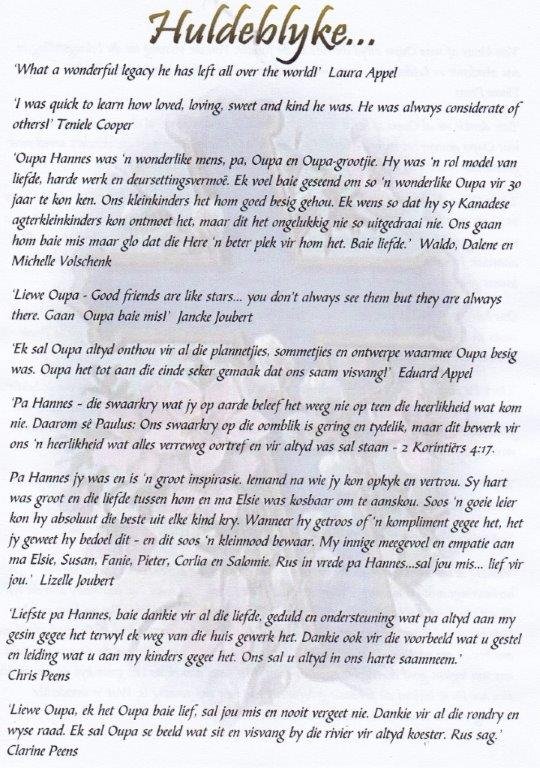 Huldeblyke...
'What a wonderful legacy he has left all over the world!' Laura Appel
'I was quick to learn how loved, loving, sweet and kind he was. He was always considerate of
others!' Teniele Cooper
'Oupa Hannes was 'n wonderlike mens, pa, Oupa en Oupa-grootjie. Hy was 'n rol model van
liefde, harde werk en deursettingsvermoë. Ek voel baie geseend om so 'n wonderlike Oupa vir 30
jaar te kon ken. Ons kleinkinders het hom goed besig gehou. Ek wens so dat hy sy Kanadese
agterkleinkinders kon ontmoet het, maar dit het ongelukkig nie so uitgedraai nie. Ons gaan
hom baie mis maar glo dat die Here 'n beter plek vir hom het. Baie liefde.' Waldo, Dalene en
Michelle Volschenk
'Liewe Oupa - Good friends are like stars... you don't always see them but they are always
there. Gaan Oupa baie mis!' Jancke Joubert
'Ek sal Oupa altyd onthou vir al die plannetjies, sommetjies en ontwerpe waarmee Oupa besig
was. Oupa het tot aan die einde seker gemaak dat ons saam visvang!' Eduard Appel
'Pa Hannes - die swaarkry wat jy op aarde beleef het weeg nie op teen die heerlikheid wat kom
nie. Daarom sê Paulus: Ons swaarkry op die oomblik is gering en tydelik, maar dit bewerk vir
ons 'n heerlikheid wat alles verreweg oortref en vir altyd vas sal staan - 2 Korintiërs 4:17.
Pa Hannes jy was en is 'n groot inspirasie. Iemand na wie jy kon opkyk en vertrou. Sy hart
was groot en die liefde tussen hom en ma Elsie was kosbaar om te aanskou. Soos 'n goeie leier
kon hy absoluut die beste uit elke kind kry. Wanneer hy getroos of 'n kompliment gegee het, het
jy geweet hy bedoel dit - en dit soos 'n kleinnood bewaar. My innige meegevoel en empatie aan
ma Elsie, Susan, Fanie, Pieter, Corlia en Salomie. Rus in vrede pa Hannes...sal jou mis... lief vir
jou.' Lizelle Joubert
'Liefste pa Hannes, baie dankie vir al die liefde, geduld en ondersteuning wat pa altyd aan my
gesin gegee het terwyl ek weg van die huis gewerk het. Dankie ook vir die voorbeeld wat u gestel
en leiding wat u aan my kinders gegee het. Ons sal u altyd in ons harte saamneem.'
Chris Peens
'Liewe Oupa, ek het Oupa baie lief, sal jou mis en nooit vergeet nie. Dankie vir al die rondry en
wyse raad. Ek sal Oupa se beeld wat sit en visvang by die rivier vir altyd koester. Rus sag.'
Clarine Peens